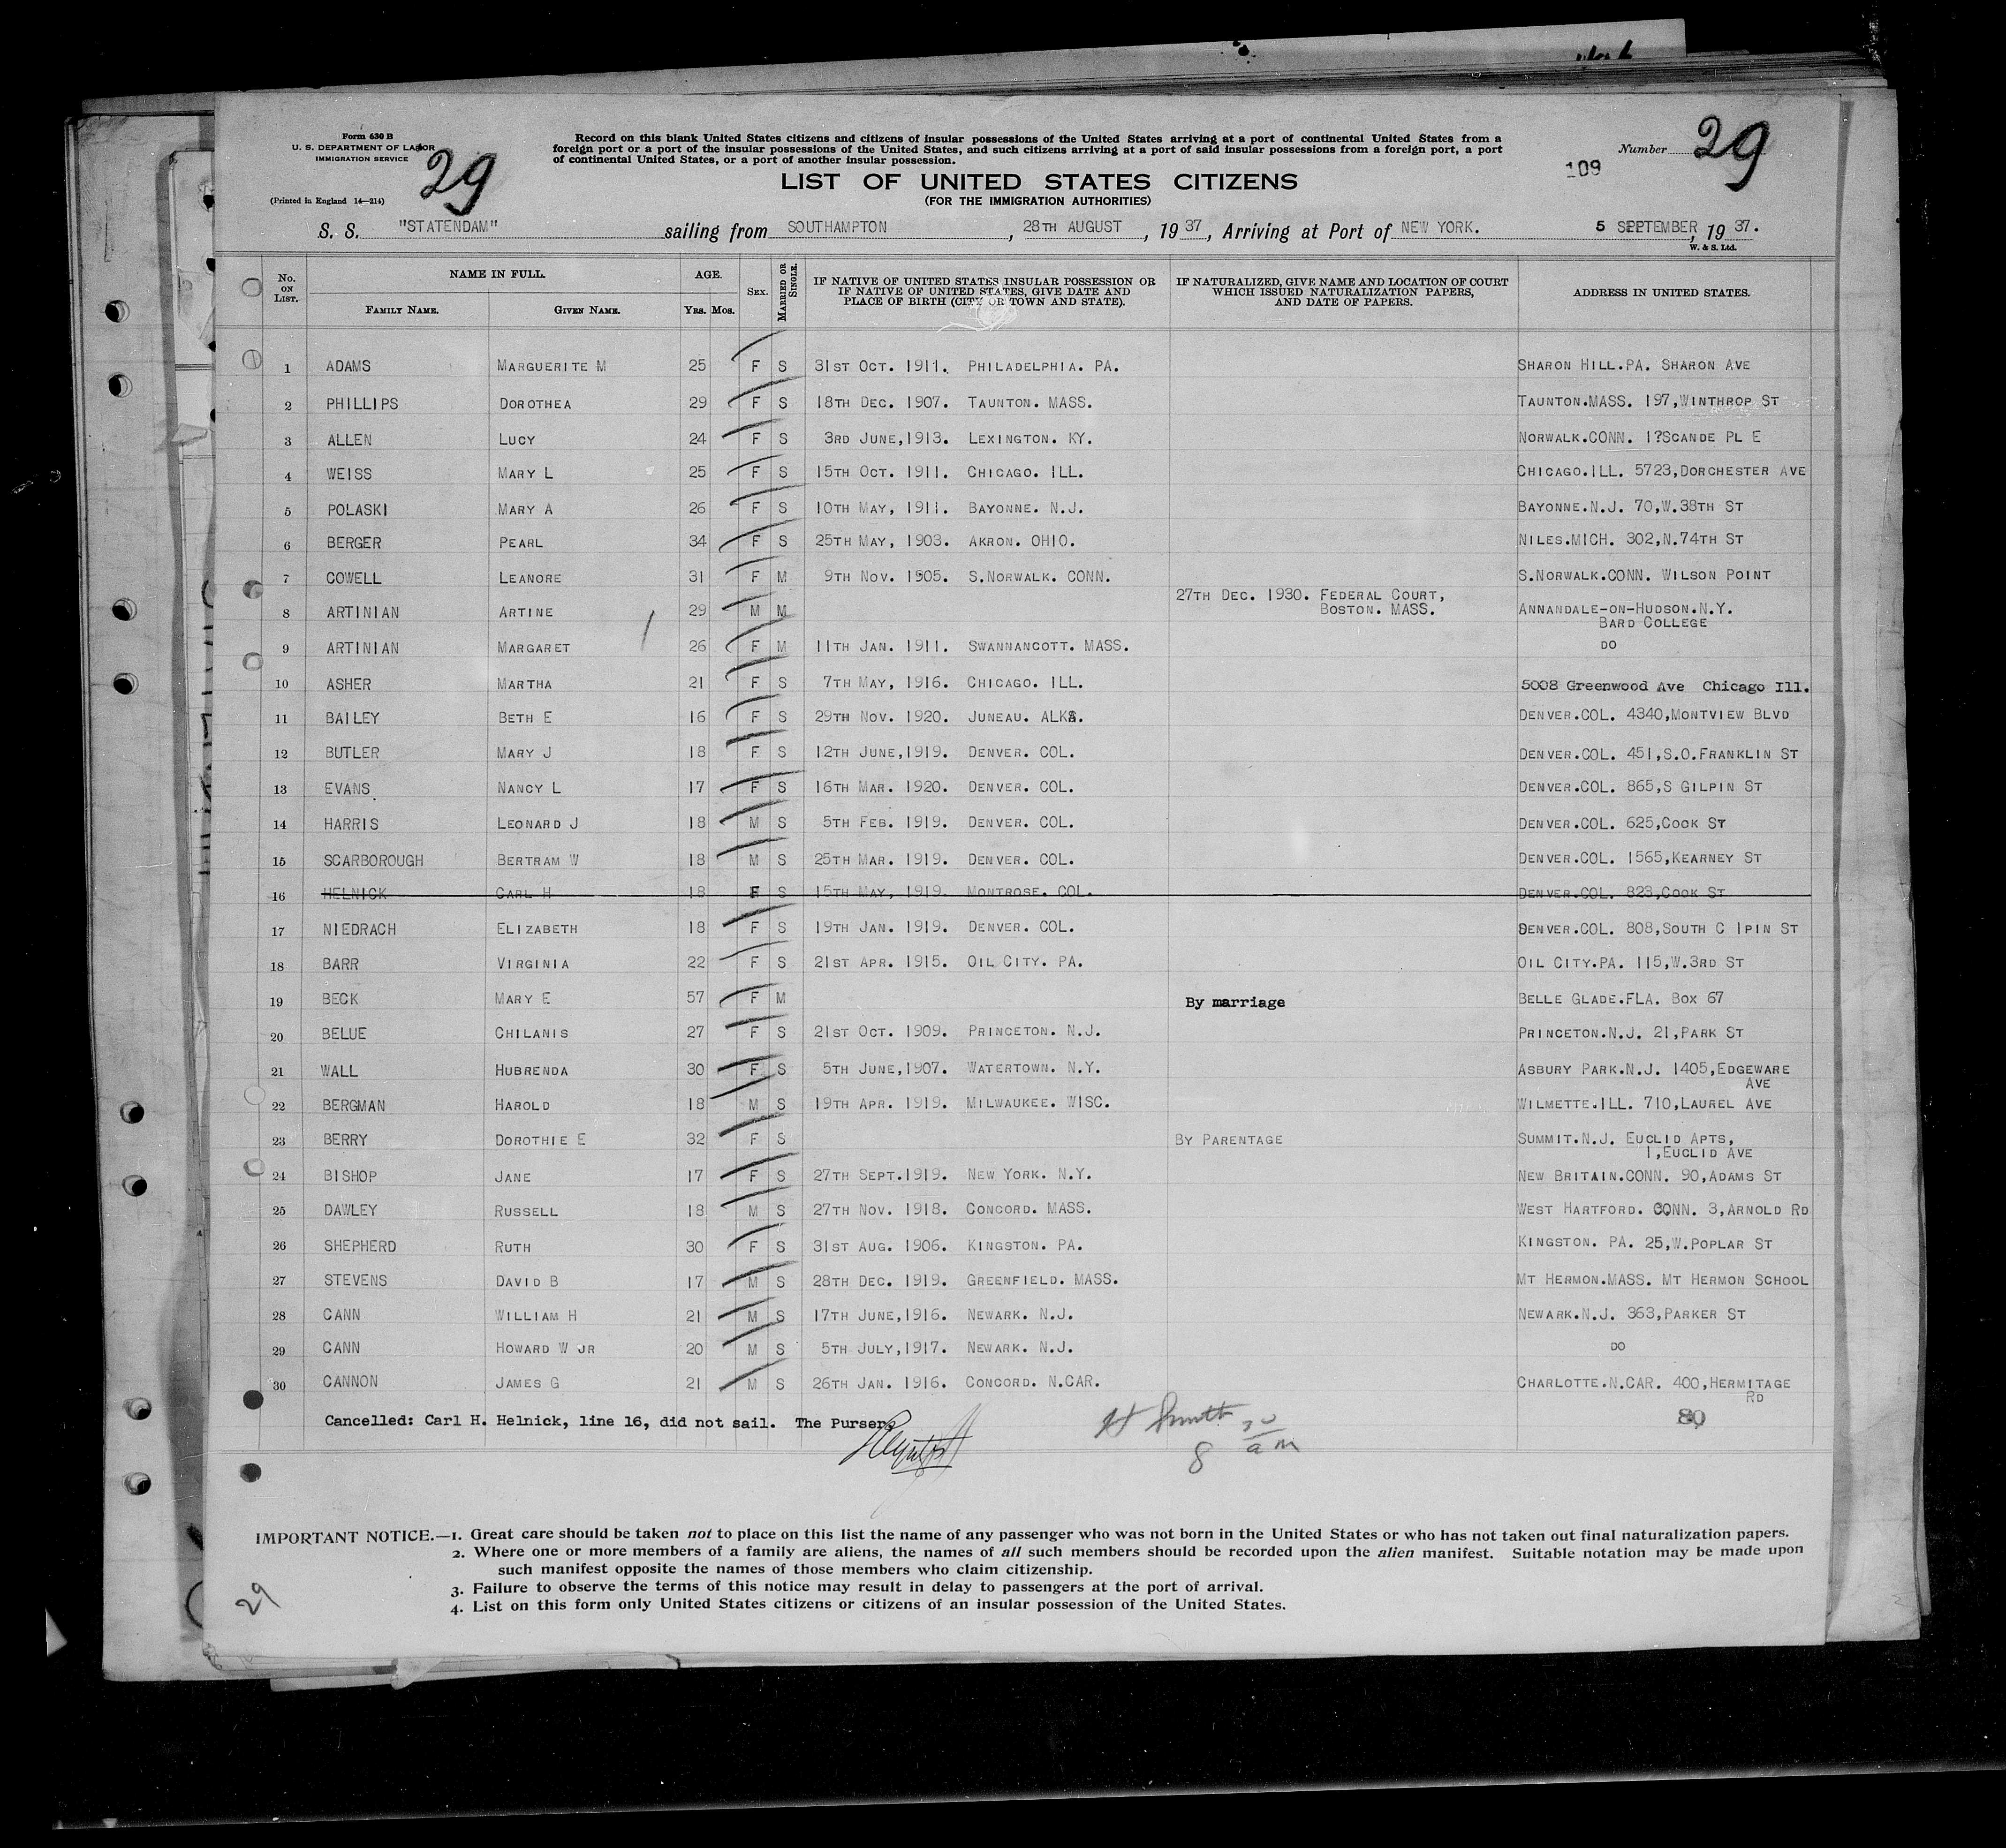 Form 630 B
U. S. DEPARTMENT OF LABOR
IMMIGRATION SERVICE
(Printed in England 14—214)
29
Record on this blank United States citizens and citizens of insular possessions of the United States arriving at a port of continental United States from a
foreign port or a port of the insular possessions of the United States, and such citizens arriving at a port of said insular possessions from a foreign port, a port
of continental United States, or a port of another insular possession.
Number 29
109
LIST OF UNITED STATES CITIZENS
(FOR THE IMMIGRATION AUTHORITIES)
S. S. "STATENDAM" sailing from SOUTHAMPTON, 28TH AUGUST, 1937, Arriving at Port of NEW YORK. 5 SEPTEMBER, 1937.
W. & S. Ltd.
No. ON LIST. NAME IN FULL. FAMILY NAME. GIVEN NAME. AGE. YRS. MOS. SEX. MARRIED OR SINGLE. IF NATIVE OF UNITED STATES INSULAR POSSESSION OR IF NATIVE OF UNITED STATES, GIVE DATE AND PLACE OF BIRTH (CITY OR TOWN AND STATE). IF NATURALIZED, GIVE NAME AND LOCATION OF COURT WHICH ISSUED NATURALIZATION PAPERS, AND DATE OF PAPERS. ADDRESS IN UNITED STATES.
1 ADAMS MARGUERITE M 25 F S 31ST OCT. 1911. PHILADELPHIA. PA. SHARON HILL.PA. SHARON AVE
2 PHILLIPS DOROTHEA 29 F S 18TH DEC. 1907. TAUNTON. MASS. TAUNTON.MASS. 197,WINTHROP ST
3 ALLEN LUCY 24 F S 3RD JUNE,1913. LEXINGTON. KY. NORWALK.CONN. 1?SCANDE PL E
4 WEISS MARY L 25 F S 15TH OCT. 1911. CHICAGO. ILL. CHICAGO.ILL. 5723,DORCHESTER AVE
5 POLASKI MARY A 26 F S 10TH MAY, 1911. BAYONNE. N.J. BAYONNE.N.J. 70,W.38TH ST
6 BERGER PEARL 34 F S 25TH MAY, 1903. AKRON. OHIO. NILES.MICH. 302,N.74TH ST
7 COWELL LEANORE 31 F M 9TH NOV. 1905. S.NORWALK. CONN. S.NORWALK.CONN. WILSON POINT
8 ARTINIAN ARTINE 29 M M 27TH DEC. 1930. FEDERAL COURT, BOSTON. MASS. ANNANDALE-ON-HUDSON.N.Y. BARD COLLEGE
9 ARTINIAN MARGARET 26 F M 11TH JAN. 1911. SWANNANCOTT. MASS. DO
10 ASHER MARTHA 21 F S 7TH MAY, 1916. CHICAGO. ILL. 5008 Greenwood Ave Chicago Ill.
11 BAILEY BETH E 16 F S 29TH NOV. 1920. JUNEAU. ALKA. DENVER.COL. 4340,MONTVIEW BLVD
12 BUTLER MARY J 18 F S 12TH JUNE,1919. DENVER. COL. DENVER.COL. 451,S.O.FRANKLIN ST
13 EVANS NANCY L 17 F S 16TH MAR. 1920. DENVER. COL. DENVER.COL. 865,S GILPIN ST
14 HARRIS LEONARD J 18 M S 5TH FEB. 1919. DENVER. COL. DENVER.COL. 625,COOK ST
15 SCARBOROUGH BERTRAM W 18 M S 25TH MAR. 1919. DENVER. COL. DENVER.COL. 1565,KEARNEY ST
16 HELNICK CARL H 18 F S 15TH MAY, 1919. MONTROSE. COL. DENVER.COL. 823,COOK ST
17 NIEDRACH ELIZABETH 18 F S 19TH JAN. 1919. DENVER. COL. DENVER.COL. 808,SOUTH C IPIN ST
18 BARR VIRGINIA 22 F S 21ST APR. 1915. OIL CITY. PA. OIL CITY.PA. 115,W.3RD ST
19 BECK MARY E 57 F M By marriage BELLE GLADE.FLA. BOX 67
20 BELUE CHILANIS 27 F S 21ST OCT. 1909. PRINCETON. N.J. PRINCETON.N.J. 21,PARK ST
21 WALL HUBRENDA 30 F S 5TH JUNE,1907. WATERTOWN. N.Y. ASBURY PARK.N.J. 1405,EDGEWARE AVE
22 BERGMAN HAROLD 18 M S 19TH APR. 1919. MILWAUKEE. WISC. WILMETTE.ILL. 710,LAUREL AVE
23 BERRY DOROTHIE E 32 F S BY PARENTAGE SUMMIT.N.J. EUCLID APTS, 1,EUCLID AVE
24 BISHOP JANE 17 F S 27TH SEPT.1919. NEW YORK. N.Y. NEW BRITAIN.CONN. 90,ADAMS ST
25 DAWLEY RUSSELL 18 M S 27TH NOV. 1918. CONCORD. MASS. WEST HARTFORD. CONN. 3,ARNOLD RD
26 SHEPHERD RUTH 30 F S 31ST AUG. 1906. KINGSTON. PA. KINGSTON. PA. 25,W.POPLAR ST
27 STEVENS DAVID B 17 M S 28TH DEC. 1919. GREENFIELD. MASS. MT HERMON.MASS. MT HERMON SCHOOL
28 CANN WILLIAM H 21 M S 17TH JUNE,1916. NEWARK. N.J. NEWARK.N.J. 363,PARKER ST
29 CANN HOWARD W JR 20 M S 5TH JULY,1917. NEWARK. N.J. DO
30 CANNON JAMES G 21 M S 26TH JAN. 1916. CONCORD. N.CAR. CHARLOTTE.N.CAR. 400,HERMITAGE RD
Cancelled: Carl H. Helnick, line 16, did not sail. The Purser
H Smith
8 30 am
80
IMPORTANT NOTICE.—1. Great care should be taken not to place on this list the name of any passenger who was not born in the United States or who has not taken out final naturalization papers.
2. Where one or more members of a family are aliens, the names of all such members should be recorded upon the alien manifest. Suitable notation may be made upon
such manifest opposite the names of those members who claim citizenship.
3. Failure to observe the terms of this notice may result in delay to passengers at the port of arrival.
4. List on this form only United States citizens or citizens of an insular possession of the United States.
29